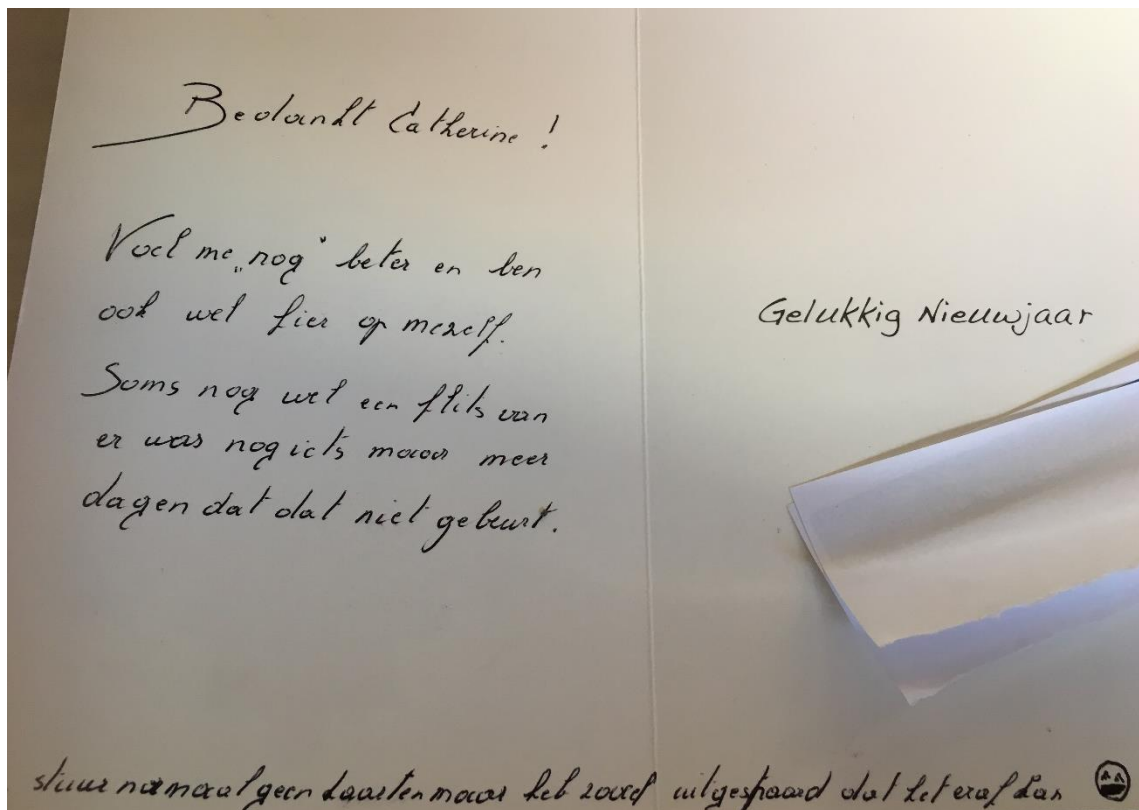 Bedankt Catherine !
Voel me „nog" beter en ben
ook wel fier op mezelf.
Soms nog wel een flits van
er was nog iets maar meer
dagen dat dat niet gebeurt.
Gelukkig Nieuwjaar
stuur normaal geen kaarten maar heb zoveel uitgespaard dat het eraf kan